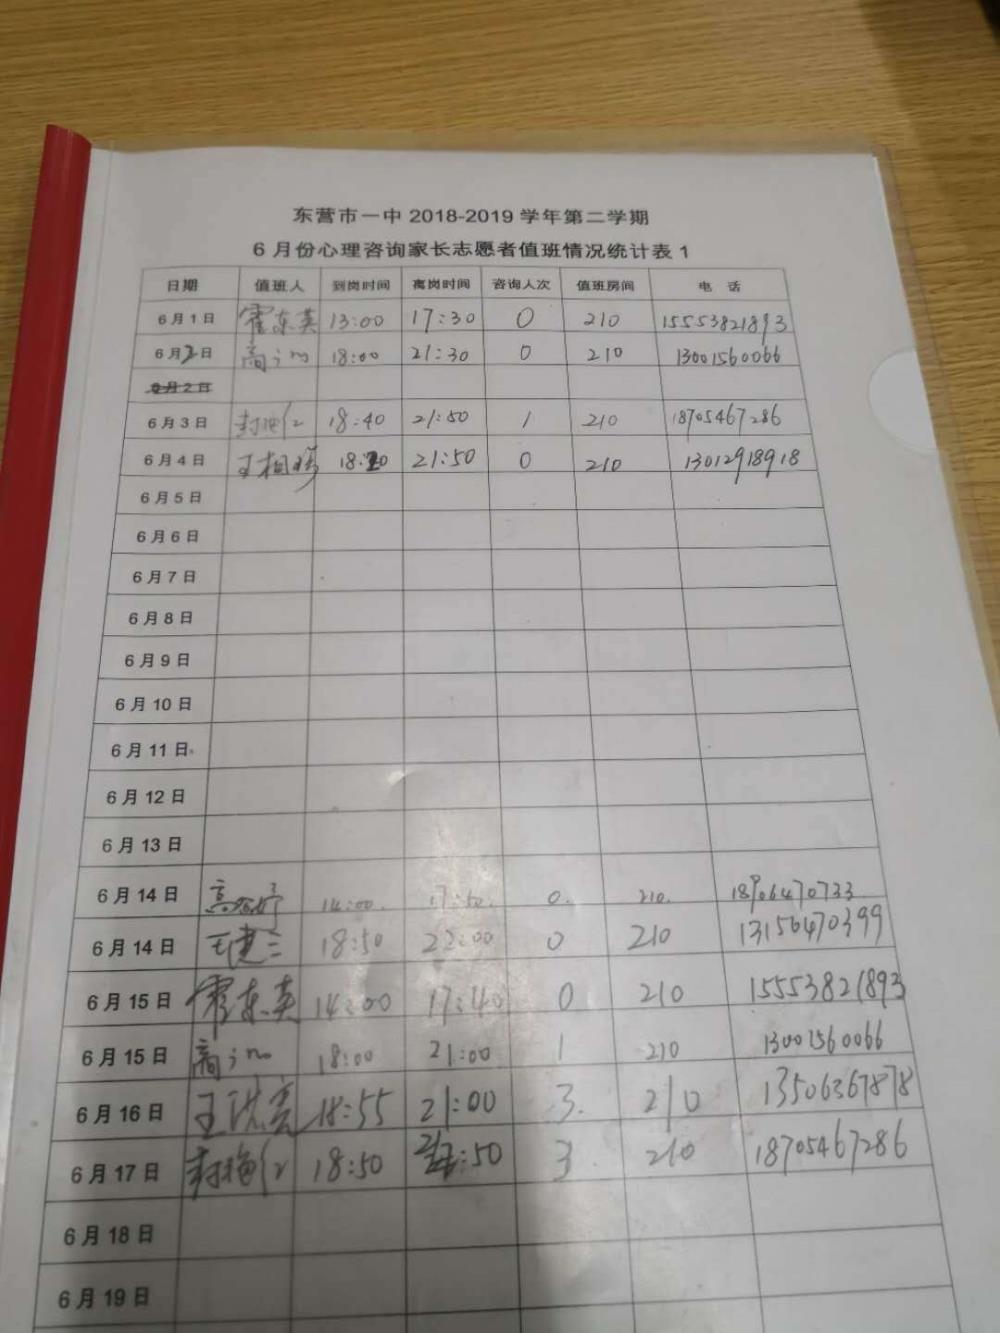 东营市一中 2018-2019 学年第二学期
6 月份心理咨询家长志愿者值班情况统计表 1
日期 值班人 到岗时间 离岗时间 咨询人次 值班房间 电 话
6月1日 霍东英 13:00 17:30 0 210 15553821893
6月2日 18:00 21:30 0 210 13001560066
6月2日
6月3日 18:40 21:50 1 210 18705467286
6月4日 21:50 0 210 13012918918
6月5日
6月6日
6月7日
6月8日
6月9日
6月10日
6月11日
6月12日
6月13日
6月14日 14:00 17:50 0 210 18906470733
6月14日 18:50 22:00 0 210 13156470399
6月15日 霍东英 14:00 17:40 0 210 15553821893
6月15日 18:00 21:00 1 210 13001560066
6月16日 18:55 21:00 3 210 13506367878
6月17日 18:50 3 210 18705467286
6月18日
6月19日